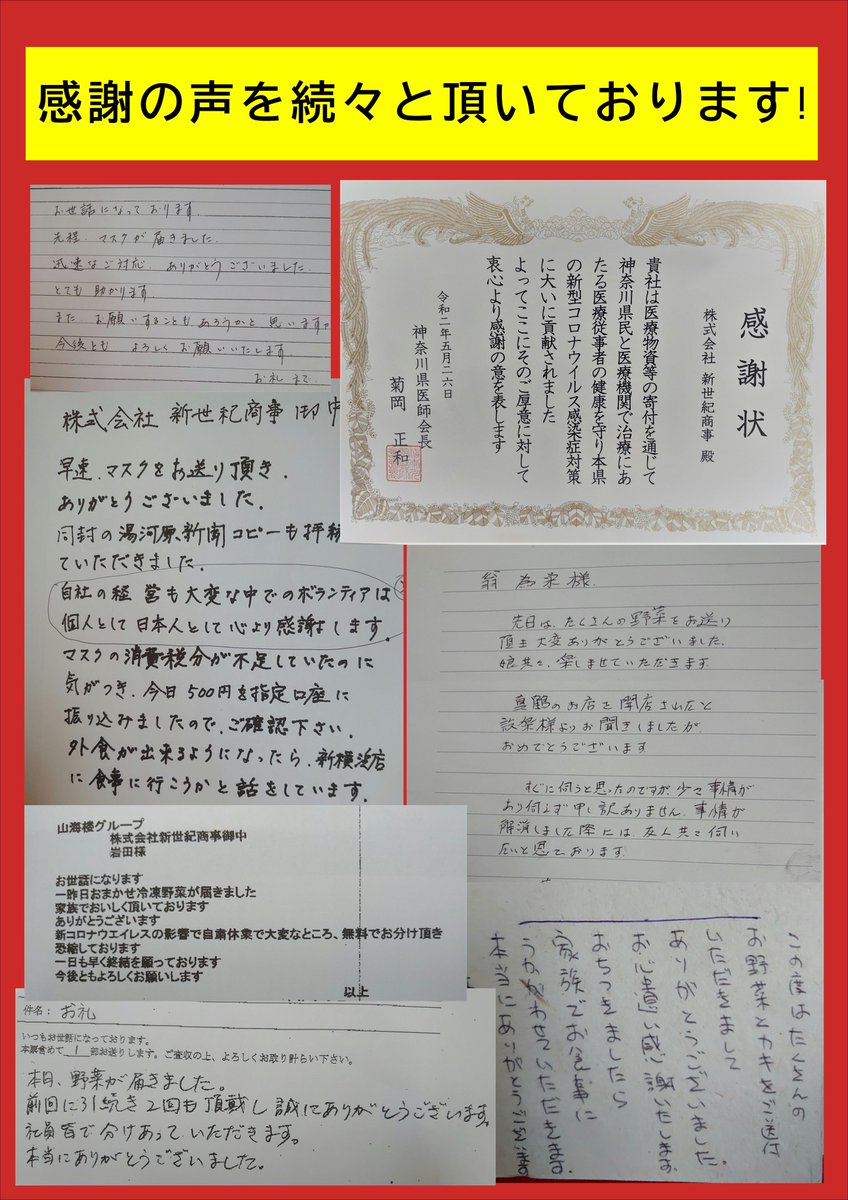 感謝の声を続々と頂いております!
お世話になっております.
先程、マスクが届きました.
迅速なご対応、ありがとうございました.
とても助かります.
また お願いすることもあろうかと思いますが
今後とも よろしくお願いいたします
お礼まで.
感謝状
株式会社 新世紀商事 殿
貴社は医療物資等の寄付を通じて
神奈川県民と医療機関で治療にあ
たる医療従事者の健康を守り本県
の新型コロナウイルス感染症対策
に大いに貢献されました
よってここにそのご厚意に対して
衷心より感謝の意を表します
令和二年五月二六日
神奈川県医師会長
菊岡 正和
株式会社 新世紀商事 御中
早速、マスクをお送り頂き、
ありがとうございました.
同封の湯河原新聞コピーも拝
ていただきました.
自社の経営も大変な中でのボランティアは
個人として日本人として心より感謝します.
マスクの消費税分が不足していたのに
気がつき、今日500円を指定口座に
振り込みましたので、ご確認下さい.
外食が出来るようになったら、新横浜店
に食事に行こうかと話をしています.
翁 為 様.
先日は、たくさんの野菜をお送り
頂き大変ありがとうございました.
娘共々、楽しませていただきます.
真鶴のお店を開店されたと
設楽様よりお聞きしましたが
おめでとうございます
すぐに伺うと思ったのですが、少々事情が
あり伺えず申し訳ありません。事情が
解消しました際には、友人共々伺い
たいと思っております.
山海楼グループ
株式会社新世紀商事御中
岩田様
お世話になります
一昨日おまかせ冷凍野菜が届きました
家族でおいしく頂いております
ありがとうございます
新コロナウエイレスの影響で自粛休業で大変なところ、無料でお分け頂き
恐縮しております
一日も早く終結を願っております
今後ともよろしくお願いします
以上
件名: お礼
いつもお世話になっております。
本票含めて 1 部お送りします。ご査収の上、よろしくお取り計らい下さい。
本日、野菜が届きました。
前回に引続き2回も頂戴し誠にありがとうございます。
社員皆で分けあっていただきます。
本当にありがとうございました。
この度はたくさんの
お野菜とカキをご送付
いただきまして
ありがとうございました。
お心遣い感謝いたします
おちつきましたら
家族でお食事に
うかがわせていただきます.
本当にありがとうございます